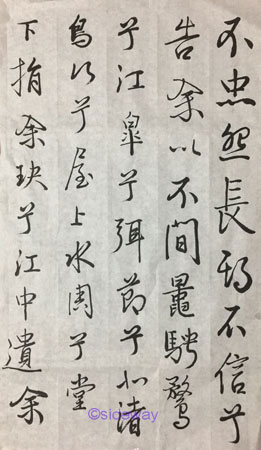 不忠怨長期不信兮
告余以不間鼂騁騖
兮江皐夕弭節兮北渚
鳥次兮屋上水周兮堂
下捐余玦兮江中遺余